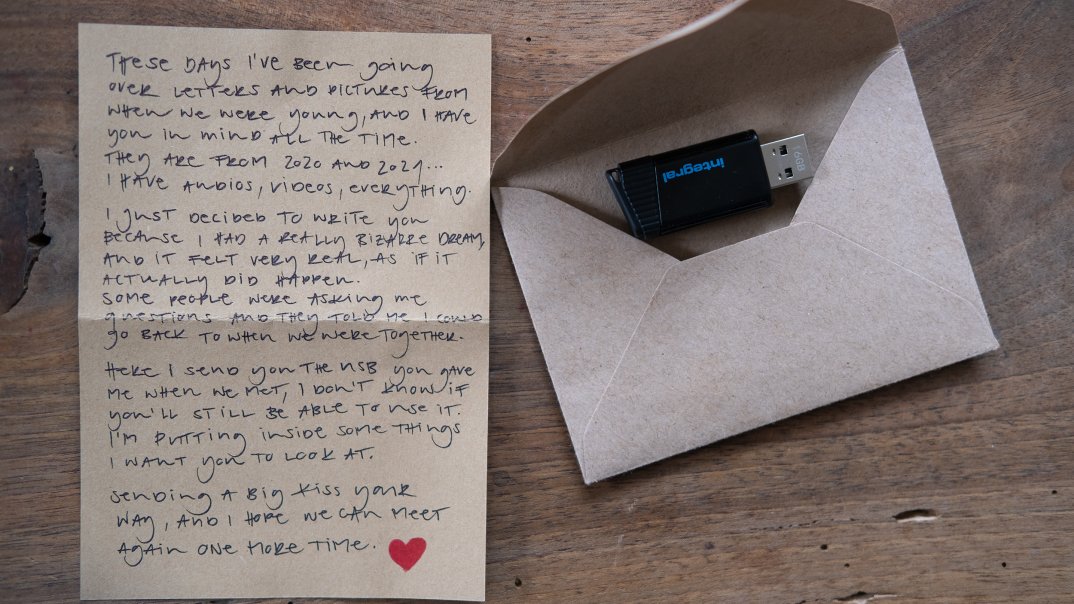 These days I've been going
over letters and pictures from
when we were young, and I have
you in mind all the time.
They are from 2020 and 2021...
I have audios, videos, everything.
I just decided to write you
because I had a really bizarre dream,
and it felt very real, as if it
actually did happen.
Some people were asking me
questions and they told me I could
go back to when we were together.
Here I send you the USB you gave
me when we met, I don't know if
you'll still be able to use it.
I'm putting inside some things
I want you to look at.
Sending a big kiss your
way, and I hope we can meet
again one more time.
integral
64GB